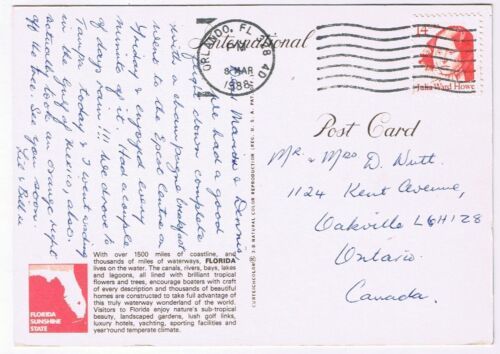 International
ORLANDO, FL 328
PM
8 MAR
1988
14
Julia Ward Howe
Post Card
Mr. & Mrs D. Nutt.
1124 Kent Avenue,
Oakville L6H1Z8
Ontario
Canada.
Marda & Dennis
We had a good
flight down complete
with a champagne breakfast
went to the Epcot Centre on
Friday & enjoyed every
minute of it. Had a couple
of days rain!!! We drove to
Tampa today & I went wading
in the Gulf of Mexico, also
actually took an orange right
off the tree. See you soon.
Lil & Bill
With over 1500 miles of coastline, and
thousands of miles of waterways, FLORIDA
lives on the water. The canals, rivers, bays, lakes
and lagoons, all lined with brilliant tropical
flowers and trees, encourage boaters with craft
of every description and thousands of beautiful
homes are constructed to take full advantage of
this truly waterway wonderland of the world.
Visitors to Florida enjoy nature's sub-tropical
beauty, landscaped gardens, lush golf links,
luxury hotels, yachting, sporting facilities and
year'round temperate climate.
FLORIDA
SUNSHINE
STATE
CURTEICHCOLOR® 3-D NATURAL COLOR REPRODUCTION (REG. U. S. A. PAT.